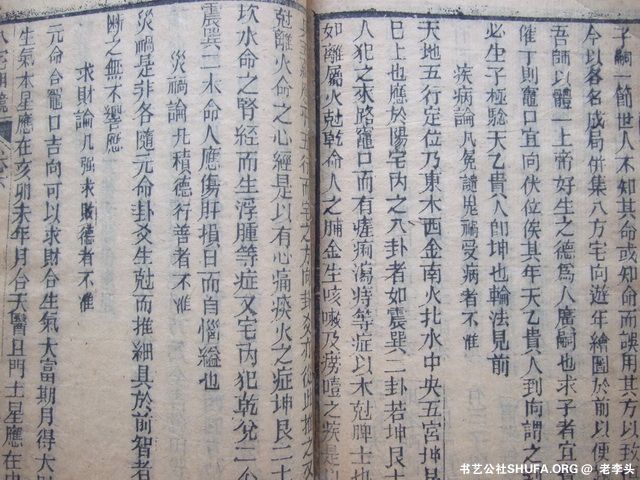 子嗣一節世人不知其命或知命而誤用其方以致
今以各名成局併集八方宅向遊年繪圖於前以便
吾師以體一上帝好生之德為人廣嗣也求子者宜
催丁則竈口宜向伏位俟其年天乙貴人到向謂之
必生子極驗天乙貴人即坤也輪法見前
疾病論凡冤譴鬼禍受病者不准
天地五行定位乃東木西金南火北水中央五宮坤
巳上也應於陽宅內之八卦者如震巽二卦若坤艮
人犯之來路竈口而有瘧痢瀉痔等症以木剋脾土也
如離屬火剋乾命人之肺金生咳嗽乃痨噎之疾是
剋離火命之心經是以有心痛痰火之症坤艮二土
坎水命之腎經而生浮腫等症又宅內犯乾兌二
震巽二木命人應傷肝損目而自惱縊也
災禍論凡積德行善者不准
災禍是非各隨元命卦爻生剋而推細具於前智者
斷之無不響應
求財論凡強求敗德者不准
元命合竈口吉向可以求財合生氣大富期月得大
生氣木星應在亥卯未年月合天醫且門土星應在